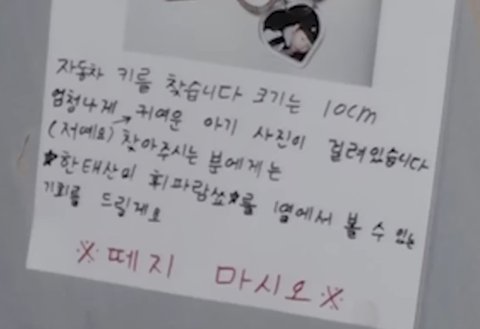 자동차 키를 찾습니다 크기는 10cm
엄청나게 귀여운 아기 사진이 걸려있습니다
(저예요) 찾아주시는 분에게는
★한태산의 휘파람쏘★를 1열에서 볼 수 있는
기회를 드릴게요
※떼지 마시오※